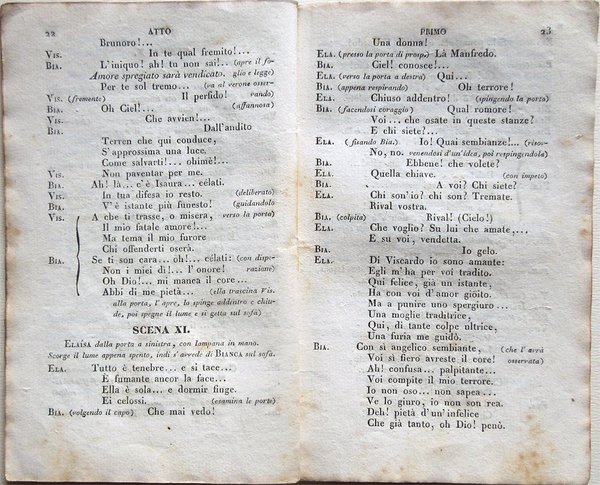 22 ATTO
Brunoro!...
VIS. In te qual fremito!...
BIA. L'iniquo! ah! tu non sai!... (apre il fo-
Amore spregiato sarà vendicato. glio e legge)
Per te sol tremo... (va al verone osser-
VIS. (fremente) Il perfido! vando)
BIA. Oh Ciel!... (affannosa)
VIS. Che avvien!...
BIA. Dall'andito
Terren che qui conduce,
S'approssima una luce.
Come salvarti!... ohimè!...
VIS. Non paventar per me.
BIA. Ah! là... c'è Isaura... célati.
VIS. In tua difesa io resto. (deliberato)
BIA. V'è istante più funesto! (guidandolo
VIS. A che ti trasse, o misera, verso la porta)
Il mio fatale amore!...
Ma tema il mio furore
Chi offenderti oserà.
BIA. Se ti son cara... oh!... célati: (con dispe-
Non i miei dì!... l'onore! razione)
Oh Dio!... mi manca il core...
Abbi di me pietà... (ella trascina Vis.
alla porta, l'apre, lo spinge addentro e chiu-
de, poi spegne il lume e si getta sul sofà)
SCENA XI.
ELAISA dalla porta a sinistra, con lampana in mano.
Scorge il lume appena spento, indi s'avvede di BIANCA sul sofà.
ELA. Tutto è tenebre... e si tace...
E fumante ancor la face...
Ella è sola... e dormir finge.
Ei celossi. (esamina le porte)
BIA. (volgendo il capo) Che mai vedo!
PRIMO 23
Una donna!
ELA. (presso la porta di prosp.) Là Manfredo.
BIA. Ciel! conosce!...
ELA. (verso la porta a destra) Qui...
BIA. (appena respirando) Oh terrore!
ELA. Chiuso addentro! (spingendo la porta)
BIA. (facendosi coraggio) Qual romore!
Voi... che osate in queste stanze?
E chi siete?...
ELA. (fisando Bia.) Io! Quai sembianze!... (risov-
No, no. venendosi d'un'idea, poi respingendola)
BIA. Ebbene! che volete?
ELA. Quella chiave. (con impeto)
BIA. A voi? Chi siete?
ELA. Chi son'io? chi son? Tremate.
Rival vostra.
BIA. (colpita) Rival! (Cielo!)
ELA. Che voglio? Su lui che amate,...
E su voi, vendetta.
BIA. Io gelo.
ELA. Di Viscardo io sono amante:
Egli m'ha per voi tradito.
Qui felice, già un istante,
Ha con voi d'amor gioito.
Ma a punire uno spergiuro...
Una moglie traditrice,
Qui, di tante colpe ultrice,
Una furia me guidò.
BIA. Con sì angelico sembiante, (che l'avrà
Voi sì fiero avreste il core! osservata)
Ah! confusa... palpitante...
Voi compite il mio terrore.
Io non oso... non sapea...
Ve lo giuro, io non son rea.
Deh! pietà d'un'infelice
Che già tanto, oh Dio! penò.